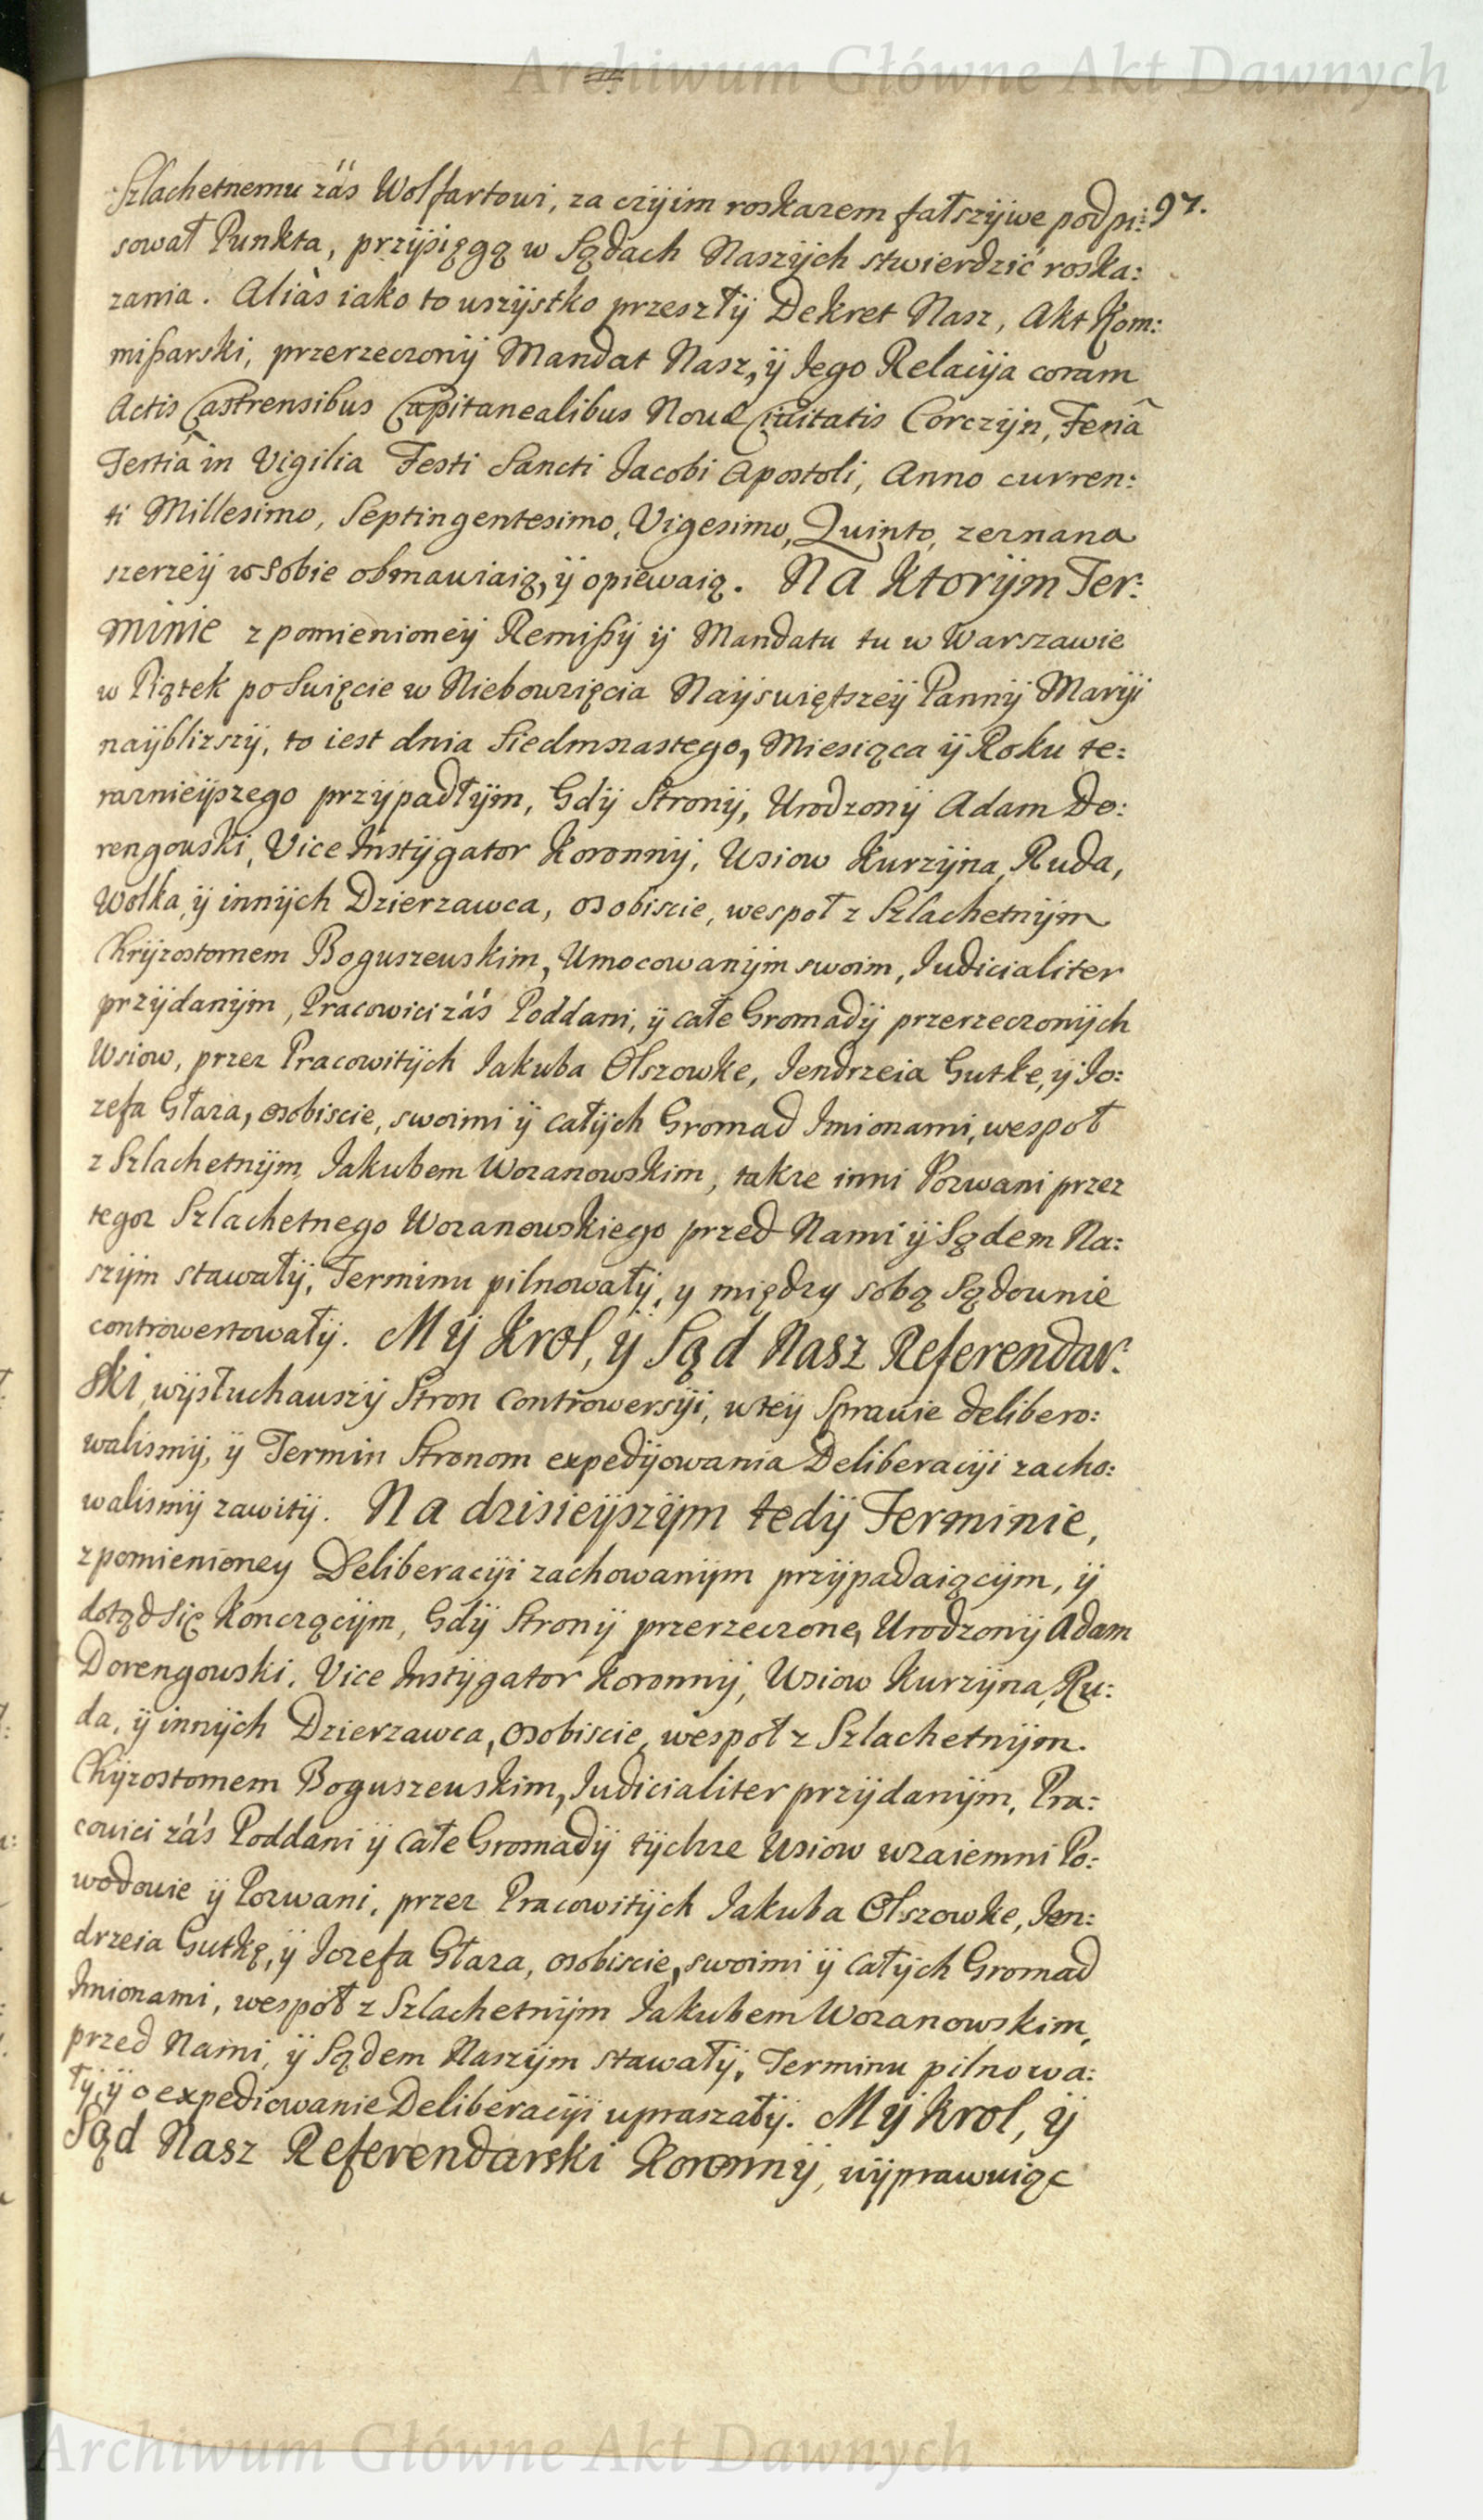 Archiwum Główne Akt Dawnych
Szlachetnemu záś Wolfartowi, za czÿim roskazem fałszÿwe podpi: 97.
sował Punkta, przÿsięgą w Sądach Naszÿch stwierdzić roska:
zania. Aliàs iako to wszÿstko przeszłÿ Dekret Nasz, Akt Kom:
mißarski, przerzeczonÿ Mandat Nasz, ÿ Jego Relacÿa coram
Actis Castrensibus Capitanealibus Novæ Civitatis Corczÿn, Feriâ
Tertiâ in Vigilia Festi Sancti Jacobi Apostoli, Anno curren:
ti Millesimo, Septingentesimo, Vigesimo, Quinto, zeznana
szerzeÿ w sobie obmawiaią, ÿ opiewaią. Na ktorÿm Ter:
minie z pomienioneÿ Remißÿ ÿ Mandatu tu w Warszawie
w Piątek po Swięcie w Niebowzięcia Naÿswiętszeÿ Pannÿ Marÿi
naÿblizszÿ, to iest dnia Siedmnastego, Miesiąca ÿ Roku te:
raznieÿszego przÿpadłÿm, Gdÿ Stronÿ, Urodzonÿ Adam Do:
rengowski, Vice Instÿgator Koronnÿ, Wsiow Kurzÿna, Ruda,
Wolka, ÿ innÿch Dzierzawca, osobiscie, wespoł z Szlachetnÿm
Chrÿzostomem Boguszewskim, Umocowanÿm swoim, Judicialiter
przÿdanÿm, Pracowici záś Poddani, ÿ całe Gromadÿ przerzeczonÿch
Wsiow, przez Pracowitÿch Jakuba Olszowke, Jendrzeia Gutke, ÿ Jo:
zefa Głaza, osobiscie, swoimi ÿ całÿch Gromad Jmionami, wespoł
z Szlachetnÿm Jakubem Wozanowskim, takze inni Pozwani przez
tegoz Szlachetnego Wozanowskiego przed Nami ÿ Sądem Na:
szÿm stawałÿ, Terminu pilnowałÿ, y między sobą Sądownie
controwertowałÿ. MŸ Krol, ÿ Sąd Nasz Referendar:
ski, wÿsłuchawszÿ Stron Controwersÿi, w teÿ Sprawie delibero:
walismÿ, ÿ Termin Stronom expedÿowania Deliberacÿi zacho:
walismÿ zawitÿ. Na dzisieÿszÿm tedÿ Terminie,
z pomienioney Deliberacÿi zachowanÿm przÿpadaiącÿm, ÿ
dotąd się konczącÿm, Gdÿ Stronÿ przerzeczone, Urodzonÿ Adam
Dorengowski, Vice Instÿgator Koronnÿ, Wsiow Kurzÿna, Ru:
da, ÿ innÿch Dzierzawca, osobiscie, wespoł z Szlachetnÿm
Chÿzostomem Boguszewskim, Judicialiter przÿdanÿm, Pra:
cowici záś Poddani ÿ całe Gromadÿ tÿchze Wsiow wzaiemni Po:
wodowie ÿ Pozwani, przez Pracowitÿch Jakuba Olszowke, Jen:
drzeia Gutkę, ÿ Jozefa Głaza, osobiscie, swoimi ÿ całÿch Gromad
Jmionami, wespoł z Szlachetnÿm Jakubem Wozanowskim,
przed Nami, ÿ Sądem Naszÿm stawałÿ, Terminu pilnowa:
łÿ, ÿ o expediowanie Deliberacÿi upraszałÿ. MŸ Krol, ÿ
Sąd Nasz Referendarski Koronnÿ, wÿprawuiąc
Archiwum Główne Akt Dawnych